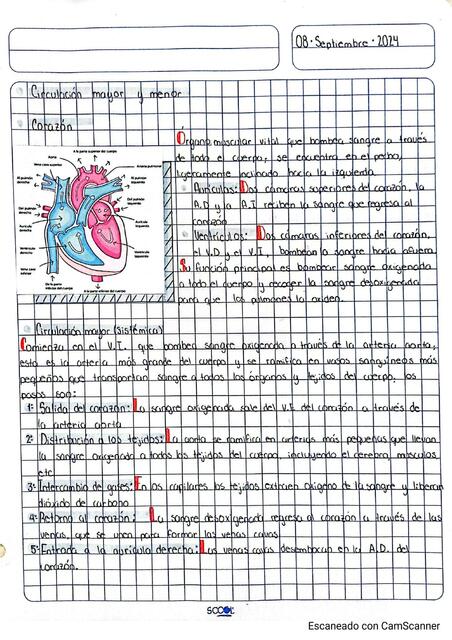 08 · Septiembre · 2024
Circulación mayor y menor
Corazón
Órgano muscular vital que bombea sangre a través
de todo el cuerpo, se encuentra en el pecho,
ligeramente inclinado hacia la izquierda
Aurículas: Dos cámaras superiores del corazón, la
A.D y la A.I reciben la sangre que regresa al
corazón
Ventrículos: Dos cámaras inferiores del corazón,
el V.D y el V.I, bombean la sangre hacia afuera
Su función principal es bombear sangre oxigenada
a todo el cuerpo y recoger la sangre desoxigenada
para que los pulmones la oxigen.
A la parte superior del cuerpo
Aorta
Vena cava superior
Arteria pulmonar
Al pulmón
derecho
Al pulmón
izquierdo
Del pulmón
derecho
Del pulmón
izquierdo
Aurícula
derecha
Aurícula
izquierda
Ventrículo
derecho
Ventrículo
izquierdo
Vena cava
inferior
A la parte inferior del cuerpo
Circulación mayor (Sistémica)
Comienza en el V.I. que bombea sangre oxigenada a través de la arteria aorta,
esta es la arteria más grande del cuerpo y se ramifica en vasos sanguíneos más
pequeños que transportan sangre a todos los órganos y tejidos del cuerpo, los
pasos son:
1- Salida del corazón: La sangre oxigenada sale del V.I. del corazón a través de
la arteria aorta
2- Distribución a los tejidos: La aorta se ramifica en arterias más pequeñas que llevan
la sangre oxigenada a todos los tejidos del cuerpo, incluyendo el cerebro, musculos,
etc
3- Intercambio de gases: En los capilares los tejidos extraen oxigeno de la sangre y liberan
dióxido de carbono
4- Retorno al corazón: La sangre desoxigenada regresa al corazón a través de las
venas, que se unen para formar las venas cavas
5- Entrada a la aurícula derecha: Las venas cavas desembocan en la A.D. del
corazón.
Escaneado con CamScanner